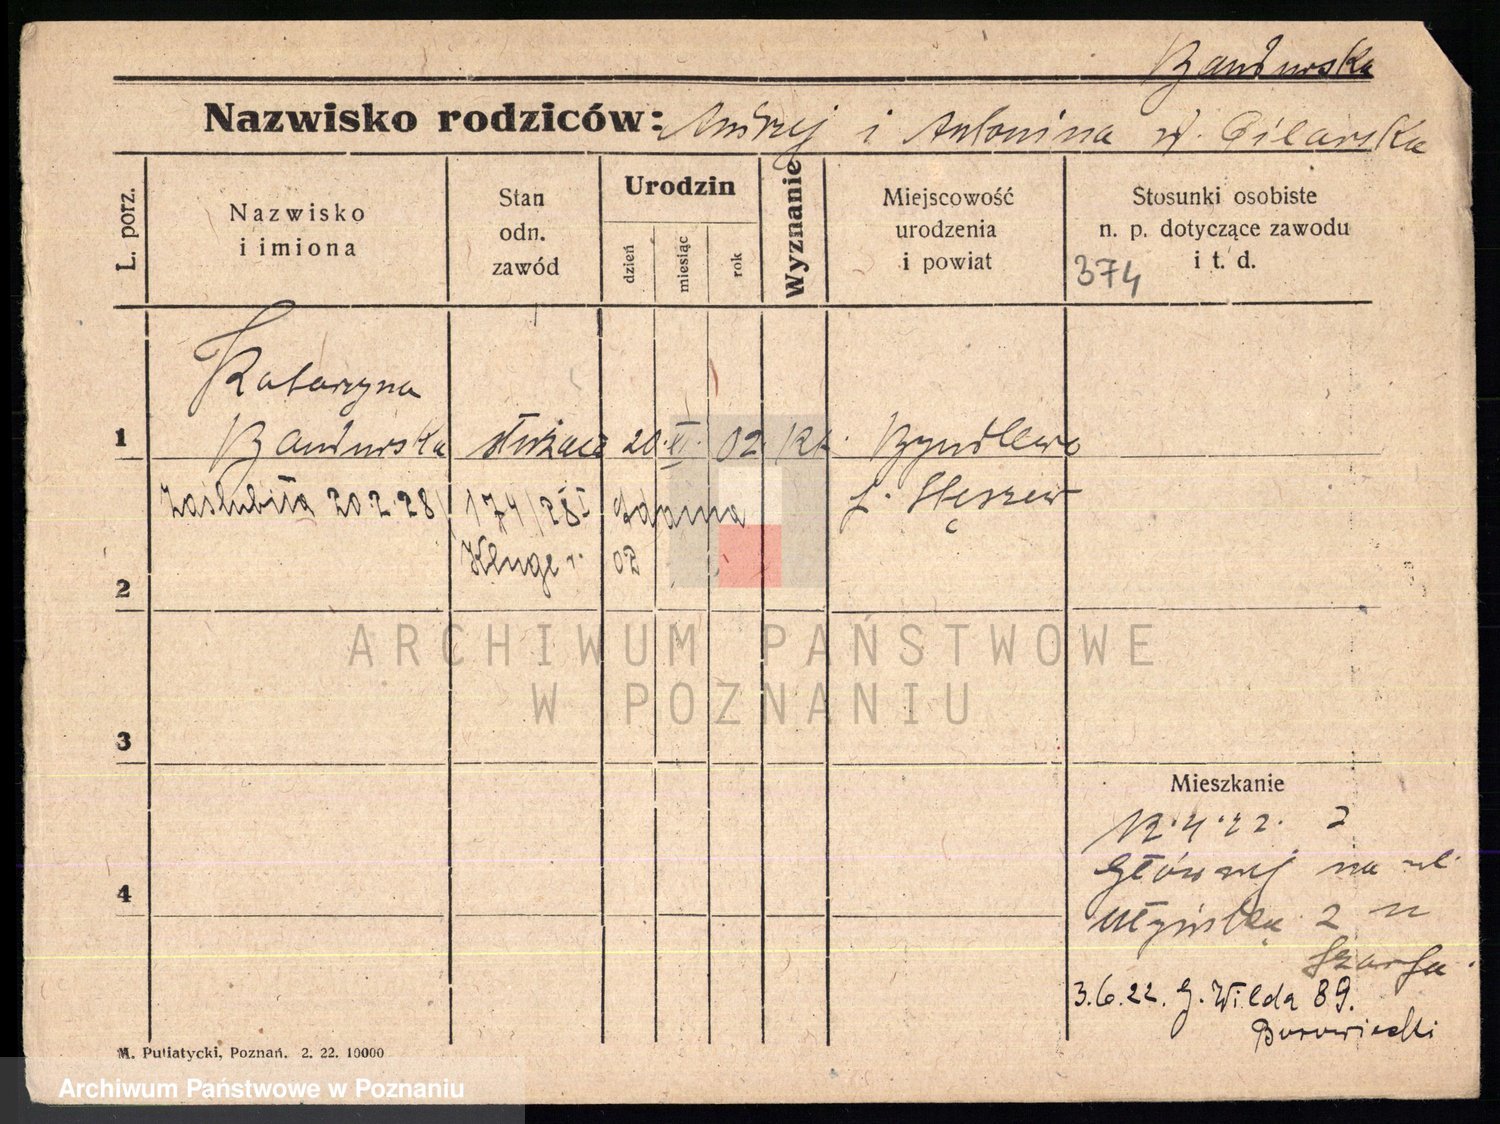 Bandurska
Nazwisko rodziców: Andrzej i Antonina z d. Pilarska
L. porz.
Nazwisko
i imiona
Stan
odn.
zawód
Urodzin
dzień
miesiąc
rok
Wyznanie
Miejscowość
urodzenia
i powiat
Stosunki osobiste
n. p. dotyczące zawodu
i t. d.
374
Katarzyna
1 Bandurska służąca 20. XI. 02. Rk.
p. Stęszew
Zaślubiła 20.2.28 174/28 I Adama
Kluge r. 02
2
3
4
Mieszkanie
12.4.22. z
Głównej na ul.
Młyńską 2 u
3.6.22. G. Wilda 89.
M. Putiatycki, Poznań. 2. 22. 10000
ARCHIWUM PAŃSTWOWE
W POZNANIU
Archiwum Państwowe w Poznaniu